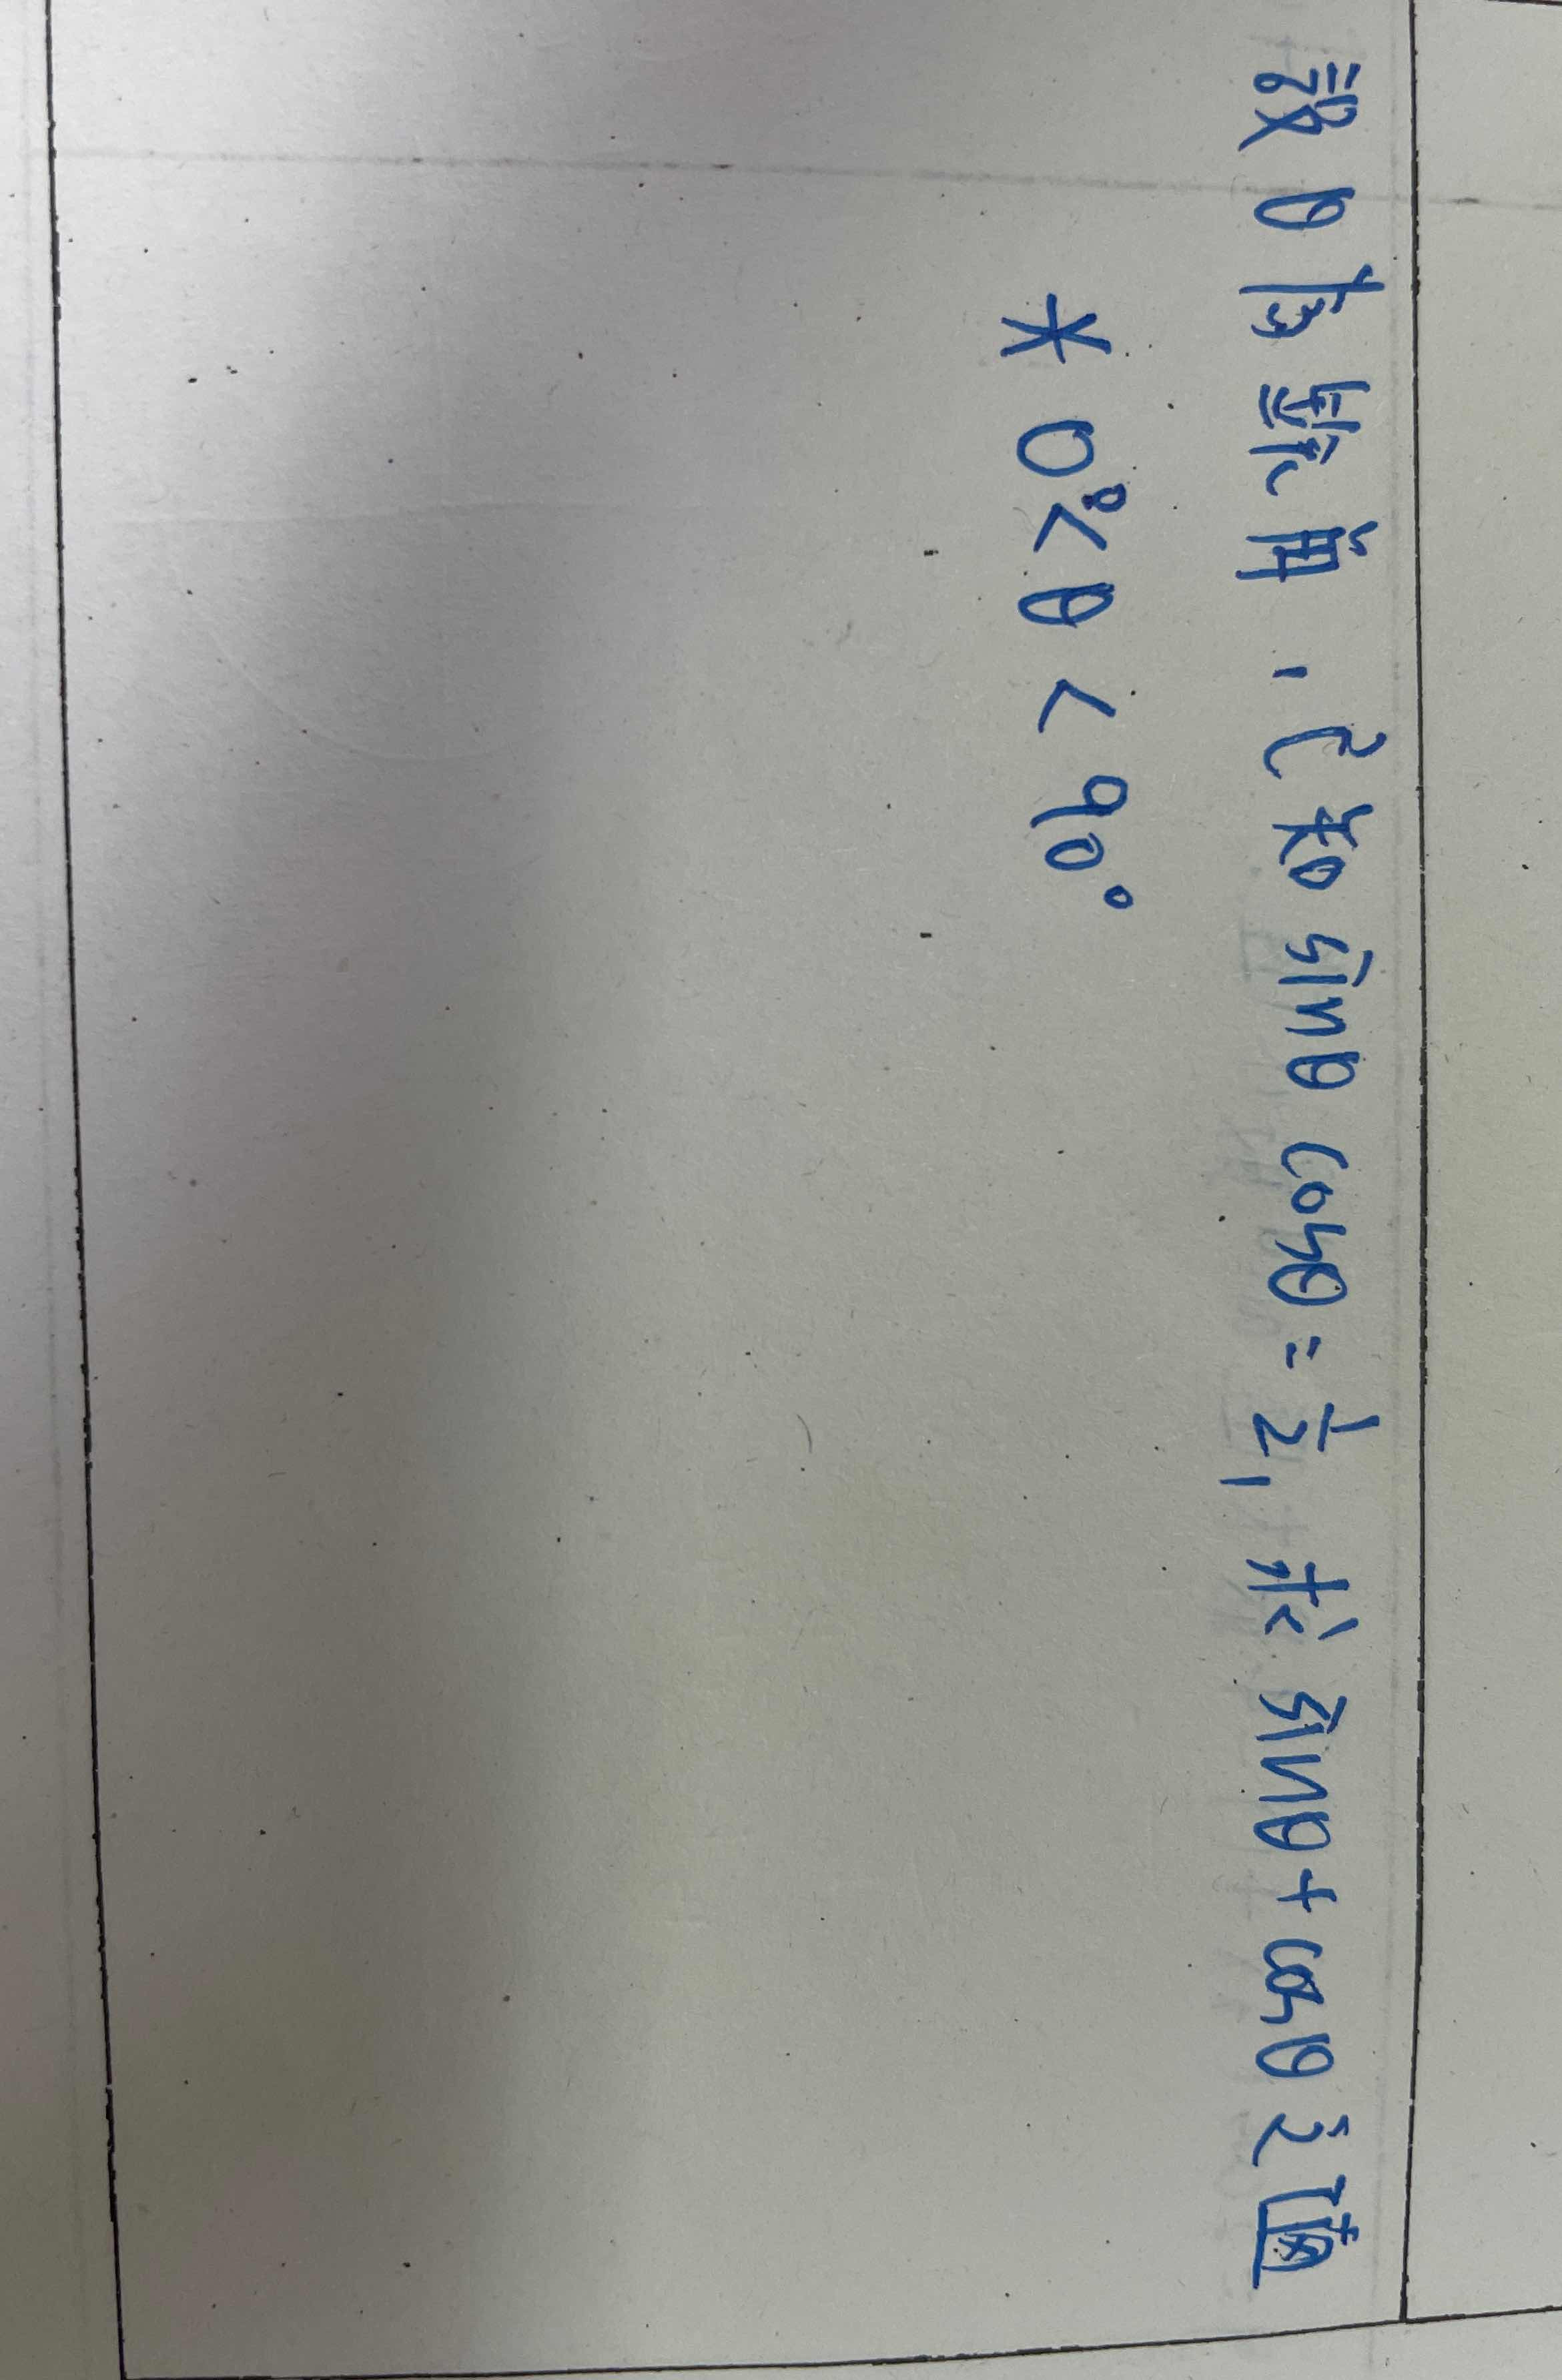 設 θ 為銳角，已知 sinθ cosθ = 1/2, 求 sinθ + cosθ 之值
* 0° < θ < 90°